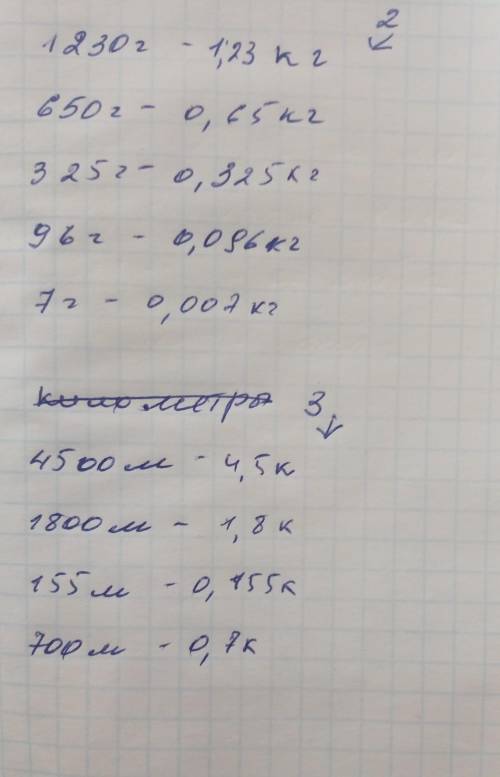 2
↙
1230г - 1,23 кг
650г - 0,65кг
325г - 0,325кг
96г - 0,096кг
7г - 0,007кг
километры 3
↓
4500м - 4,5к
1800м - 1,8к
155м - 0,155к
700м - 0,7к